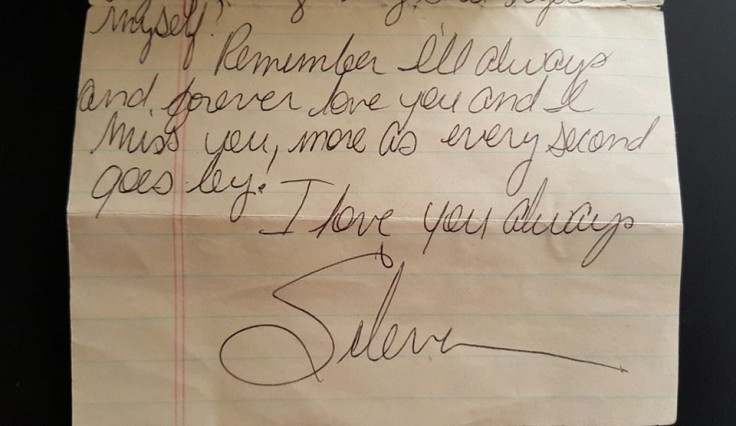 myself!
Remember I'll always
and forever love you and I
miss you, more as every second
goes by!
I love you always